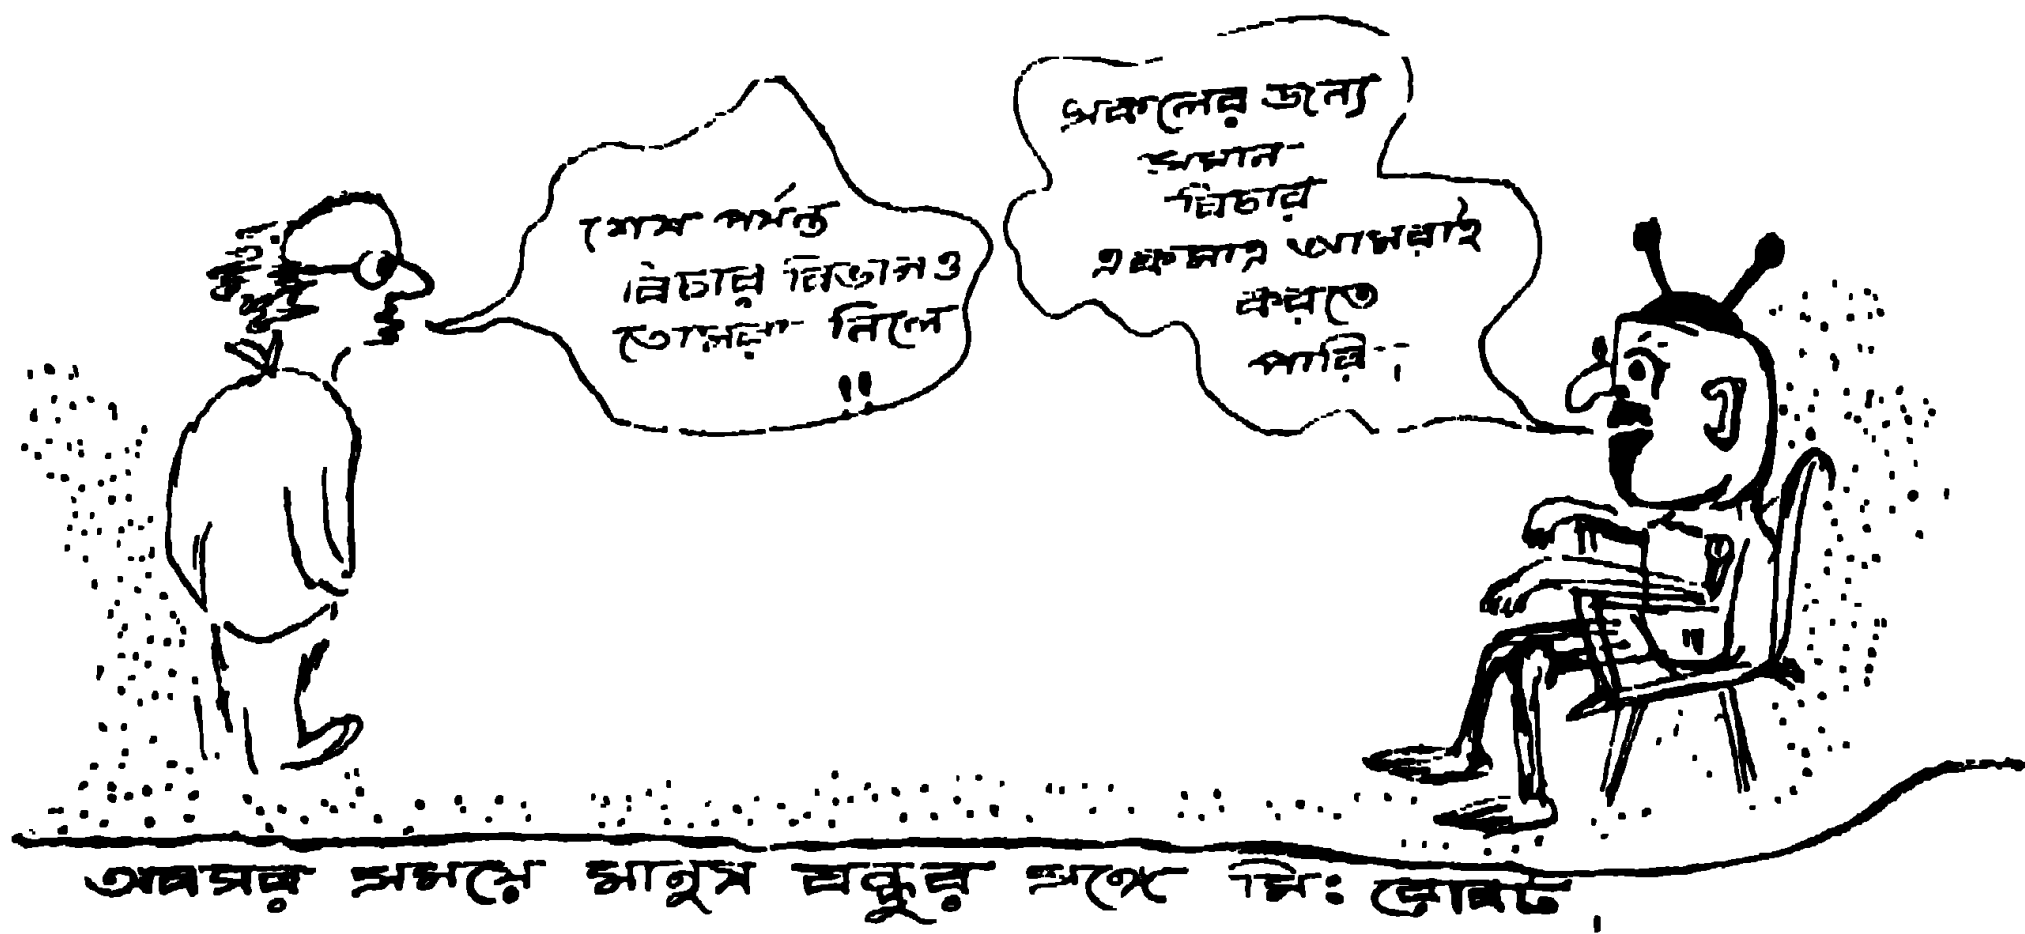 শেষ পর্যন্ত
বিচার বিভাগও
তোমরা নিলে
!!
সকলের জন্য
সমান
বিচার
একমাত্র আমরাই
করতে
পারি।
অবসর সময়ে মানুষ বন্ধুর সঙ্গে মিঃ রোবট।